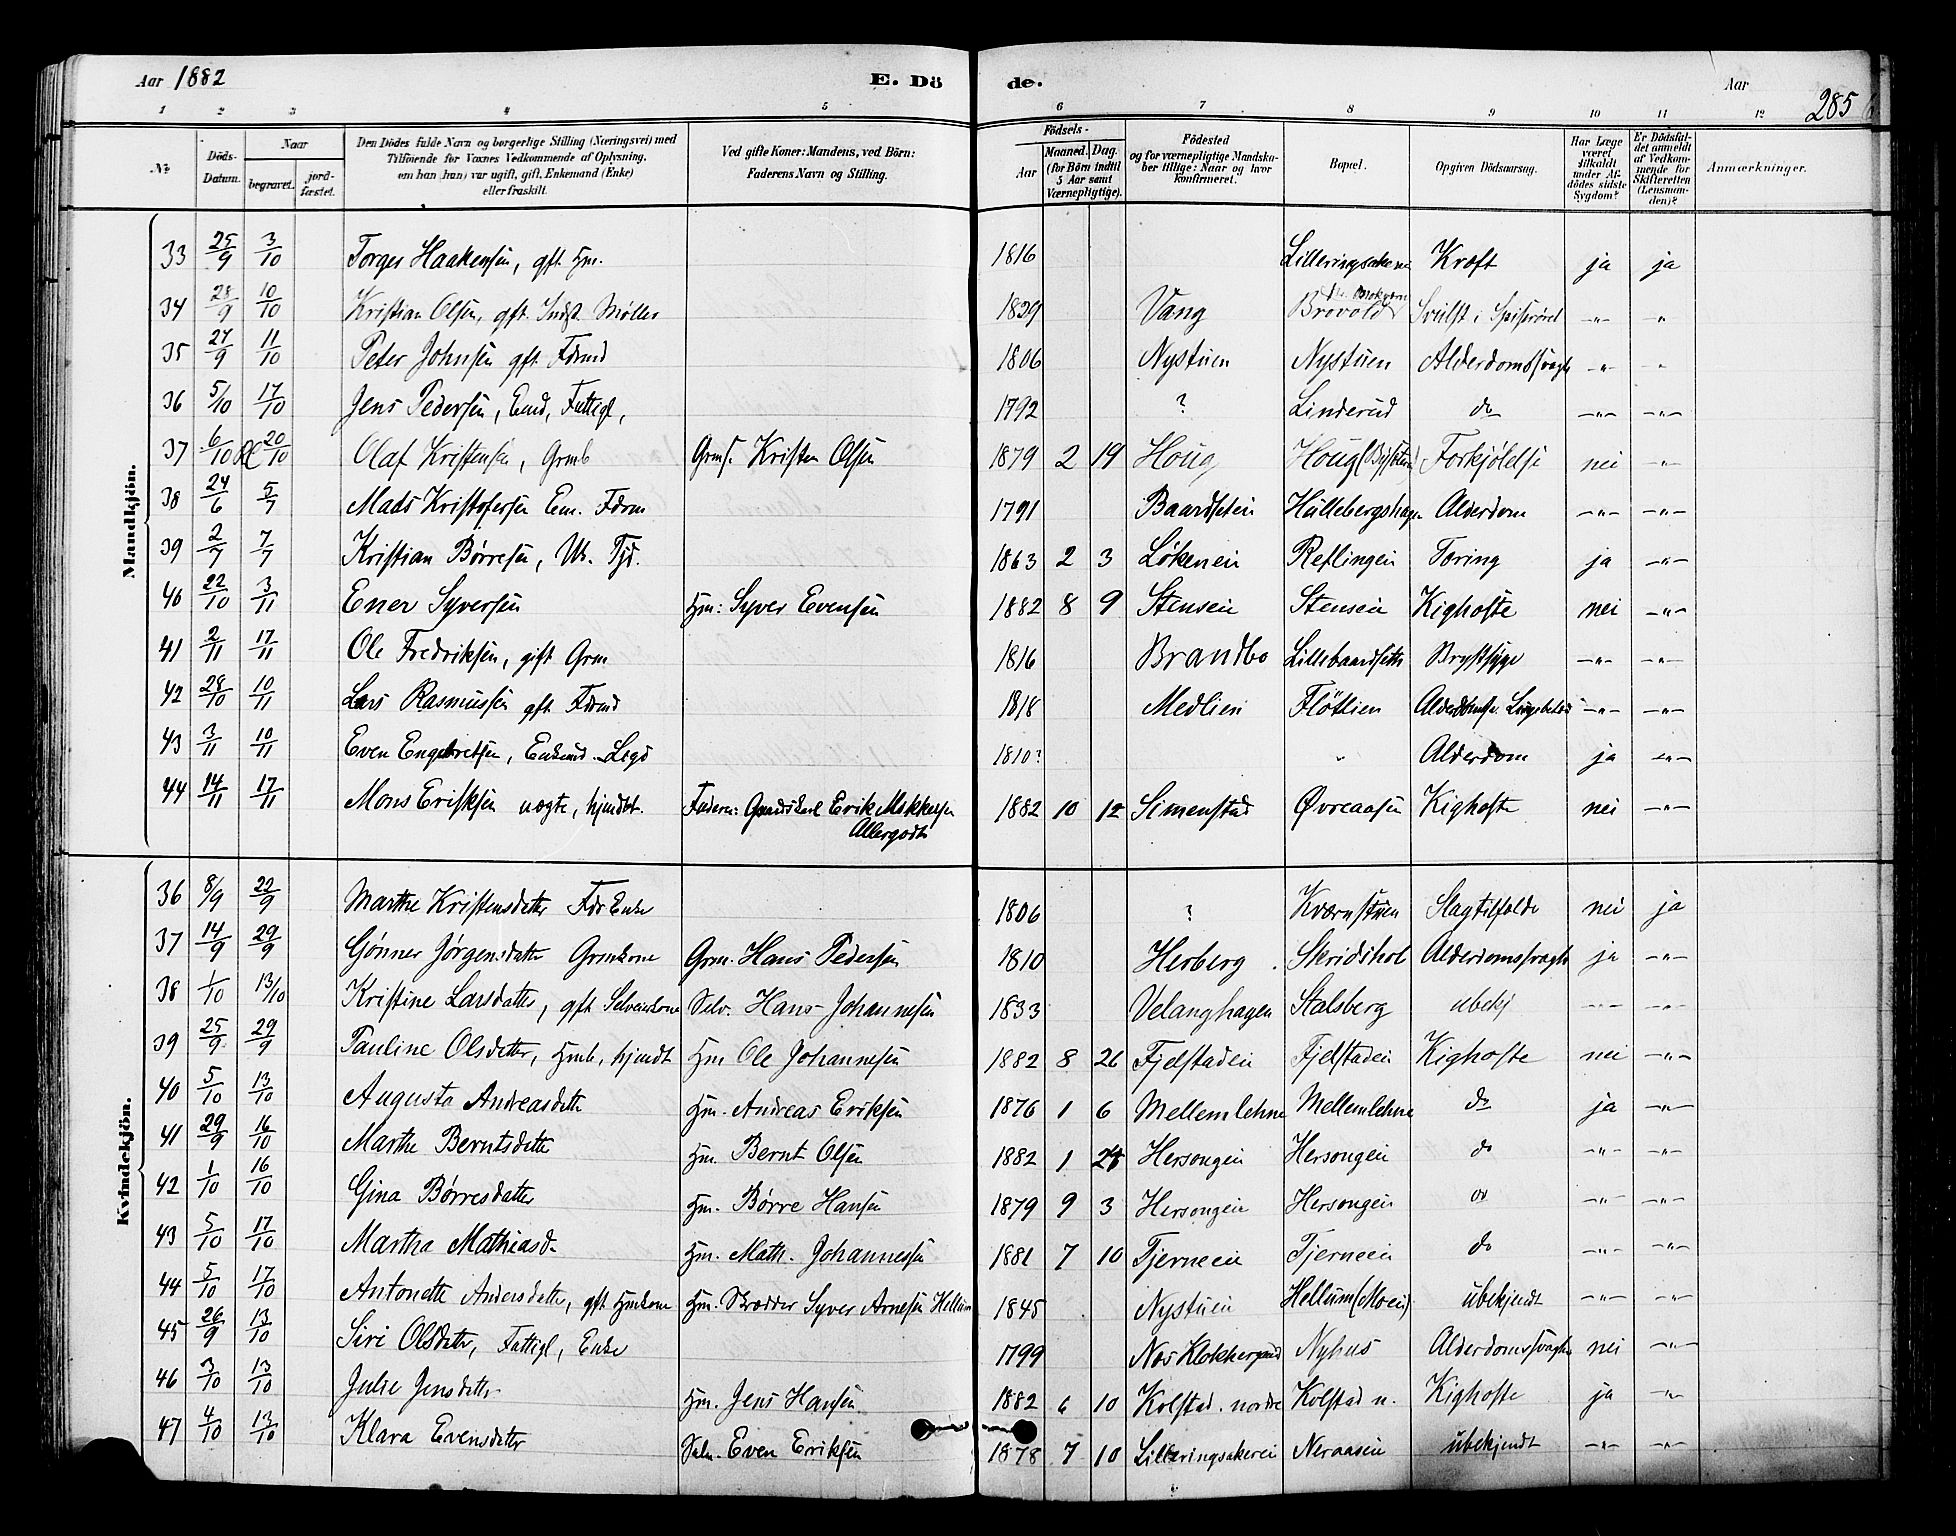 Aar 1882 E. Döde. Aar 285
1 2 3 4 5 6 7 8 9 10 11 12
No. Döds-Datum. Naar begravet. jordfæstet. Den Dödes fulde Navn og borgerlige Stilling (Næringsvei) med Tilföiende for Voxnes Vedkommende af Oplysning, om han (hun) var ugift, gift, Enkemand (Enke) eller fraskilt. Ved gifte Koner: Mandens, ved Börn: Faderens Navn og Stilling. Födsels- Aar Maaned. Dag. (for Börn indtil 5 Aar samt Værnepligtige). Födested og for værnepligtige Mandskaber tillige: Naar og hvor konfirmeret. Bopæl. Opgiven Dödsaarsag. Har Læge været tilkaldt under Afdödes sidste Sygdom? Er Dödsfaldet anmeldt af Vedkommende for Skifteretten (Lensmanden)? Anmærkninger.
Mandkjön.
33 25/9 3/10 Torger Haakensen, gft. Hm. 1816 Lilleringsakeren Kræft ja ja
34 28/9 10/10 Kristian Olsen, gft. Indst. Møller 1829 Vang Brovold Svulst i Spiserøret -"- "
35 27/9 11/10 Peter Johnsen gft. Fdrmd 1806 Nystuen Nystuen Alderdomssvagh -"- "
36 5/10 17/10 Jens Pedersen, Emd, Fattigl, 1792 ? Linderud do -"- -"-
37 6/10 20/10 Olaf Kristensen, Grmb Grmf. Kristen Olsen 1879 2 19 Houg Houg Forkjølelse nei -"-
38 24/6 5/7 Mads Kristofersen Em. Fdrm 1791 Baardseien Hullebergshagen Alderdom -"- -"-
39 2/7 7/7 Kristian Børresen, Uk. Tjd. 1863 2 3 Løkeneie Reflingen Tæring ja -"-
40 22/10 3/11 Ener Syversen Hm: Syver Evensen 1882 8 9 Stenseie Stenseie Kighoste nei -"-
41 2/11 17/11 Ole Fredriksen, gift Grm 1816 Brandbo Lillebaardseth Brystsyge -"- -"-
42 28/10 10/11 Lars Rasmussen gft. Fdrmd 1818 Medlien Fløtlien -"- -"-
43 3/11 10/11 Even Engebretsen, Enkemd. Legd 1810? " Alderdom ja -"-
44 14/11 17/11 Mons Eriksen uægte, hjmdbt. Faderen: Gaardskarl Erik Mikkelsen 1882 10 12 Simenstad Øvreaasen Kighoste nei -"-
Allergodt
Kvindekjön.
36 8/9 22/9 Marthe Kristensdatter Fdr Enke 1806 ? Kværnstuen Slagtilfælde nei ja
37 14/9 29/9 Gønner Jørgensdatter Grmkone Grm. Hans Pedersen 1810 Herberg Skridshol Alderdomssvagh ja -"-
38 1/10 13/10 Kristine Larsdatter, gft Selveierkone Selv. Hans Johannesen 1833 Velanghagen Stalsberg ubekj -"- -"-
39 25/9 29/9 Pauline Olsdatter, Hmb, hjemdt Hm Ole Johannesen 1882 8 26 Fjelstadeie Fjelstadeie Kighoste nei -"-
40 5/10 13/10 Augusta Andreasdatter Hm. Andreas Eriksen 1876 1 6 Mellemlehne Mellemlehne do ja -"-
41 29/9 16/10 Marthe Berntsdatter Hm. Bernt Olsen 1882 1 Hersongeie Hersongeie do -"- -"-
42 1/10 16/10 Gina Børresdatter Hm. Børre Hansen 1879 9 3 Hersongeie Hersongeie do -"- -"-
43 5/10 17/10 Martha Mathiasd. Hm. Math. Johannessen 1881 7 10 Tjerneeie Tjerneeie do -"- -"-
44 5/10 17/10 Antonette Andersdatter, gft Hmkone Hm. Skrædder Syver Arnesen Hellum 1845 Nystuen Hellum (Moen) ubekjendt -"- -"-
45 26/9 13/10 Siri Olsdatter, Fattigl, Enke 1799 Næs Klokkergaard Nyhus Alderdomssvaghe nei -"-
46 3/10 13/10 Julie Jensdatter Hm. Jens Hansen 1882 6 10 Kolstad nordre Kolstad n. Kighoste ja -"-
47 4/10 13/10 Klara Evensdatter Selv. Even Eriksen 1878 7 10 Lilleringsakeren Neraasen ubekjendt -"- -"-